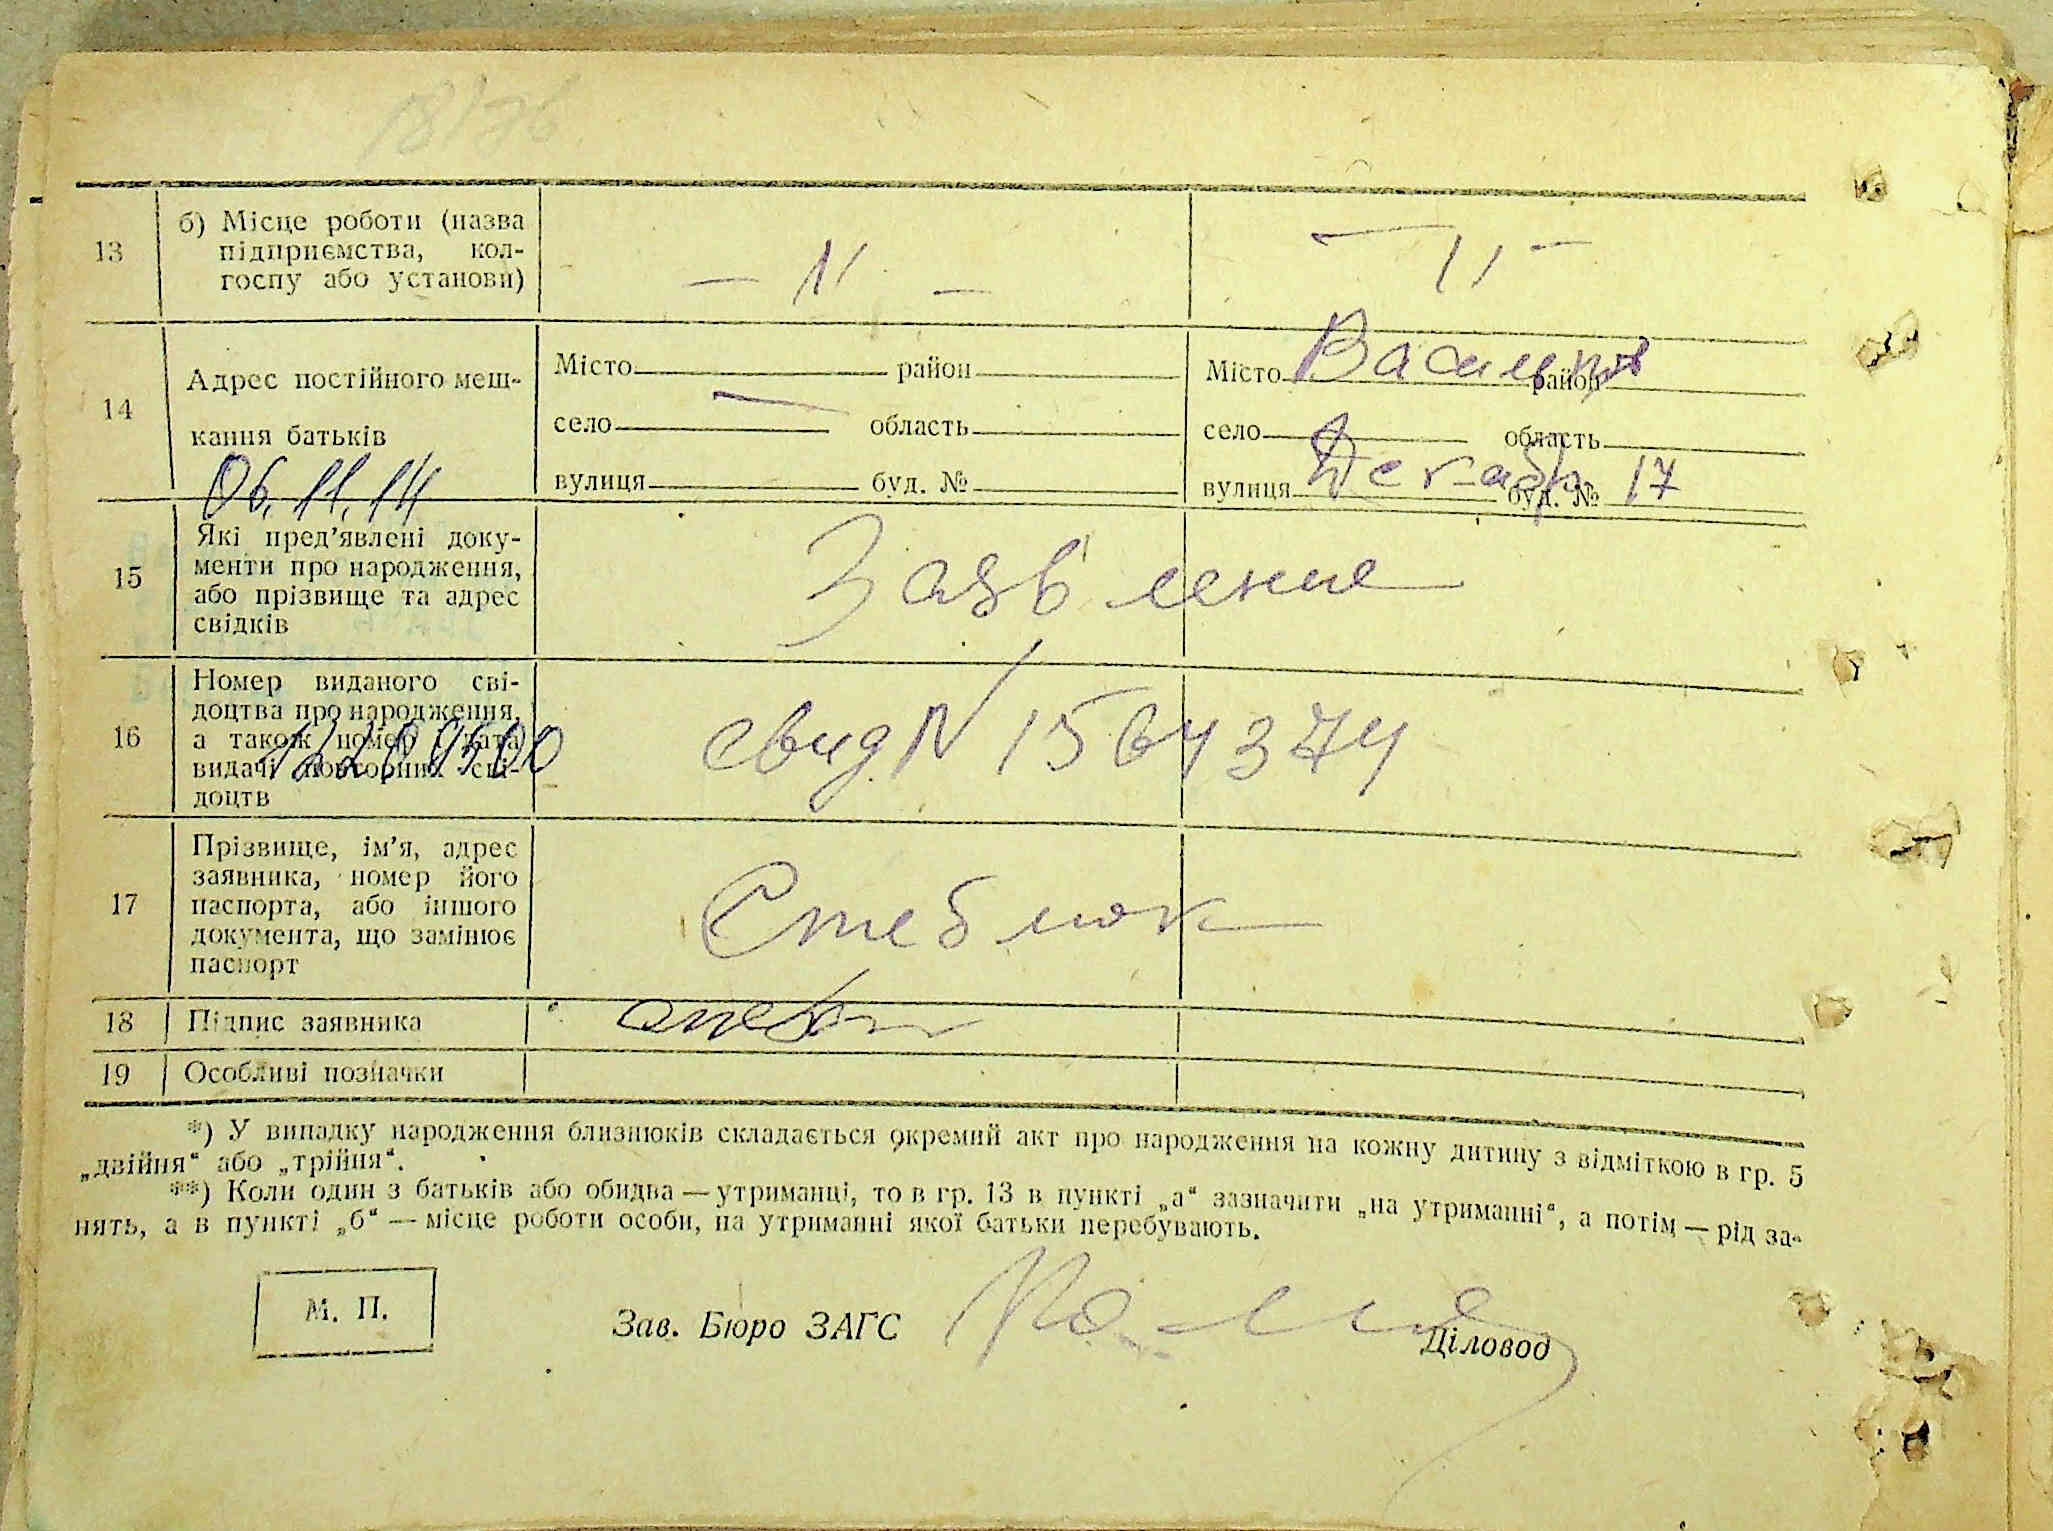 13
б) Місце роботи (назва
підприємства, кол-
госпу або установи)
— 11 —
— 11 —
14
Адрес постійного меш-
кання батьків
Місто район
село область
вулиця буд. №
Місто район
село область
вулиця буд. № 17
06.11.14
15
Які пред'явлені доку-
менти про народження,
або прізвище та адрес
свідків
Заявление
16
Номер виданого сві-
доцтва про народження,
а також номер і дата
видачі повторних сві-
доцтв
свид N 1564374
17
Прізвище, ім'я, адрес
заявника, номер його
паспорта, або іншого
документа, що замінює
паспорт
Стеблюк
18 Підпис заявника
19 Особливі позначки
*) У випадку народження близнюків складається окремий акт про народження на кожну дитину з відміткою в гр. 5
„двійня“ або „трійня“.
**) Коли один з батьків або обидва — утриманці, то в гр. 13 в пункті „а“ зазначити „на утриманні“, а потім — рід за-
нять, а в пункті „б“ — місце роботи особи, на утриманні якої батьки перебувають.
М. П.
Зав. Бюро ЗАГС
Діловод